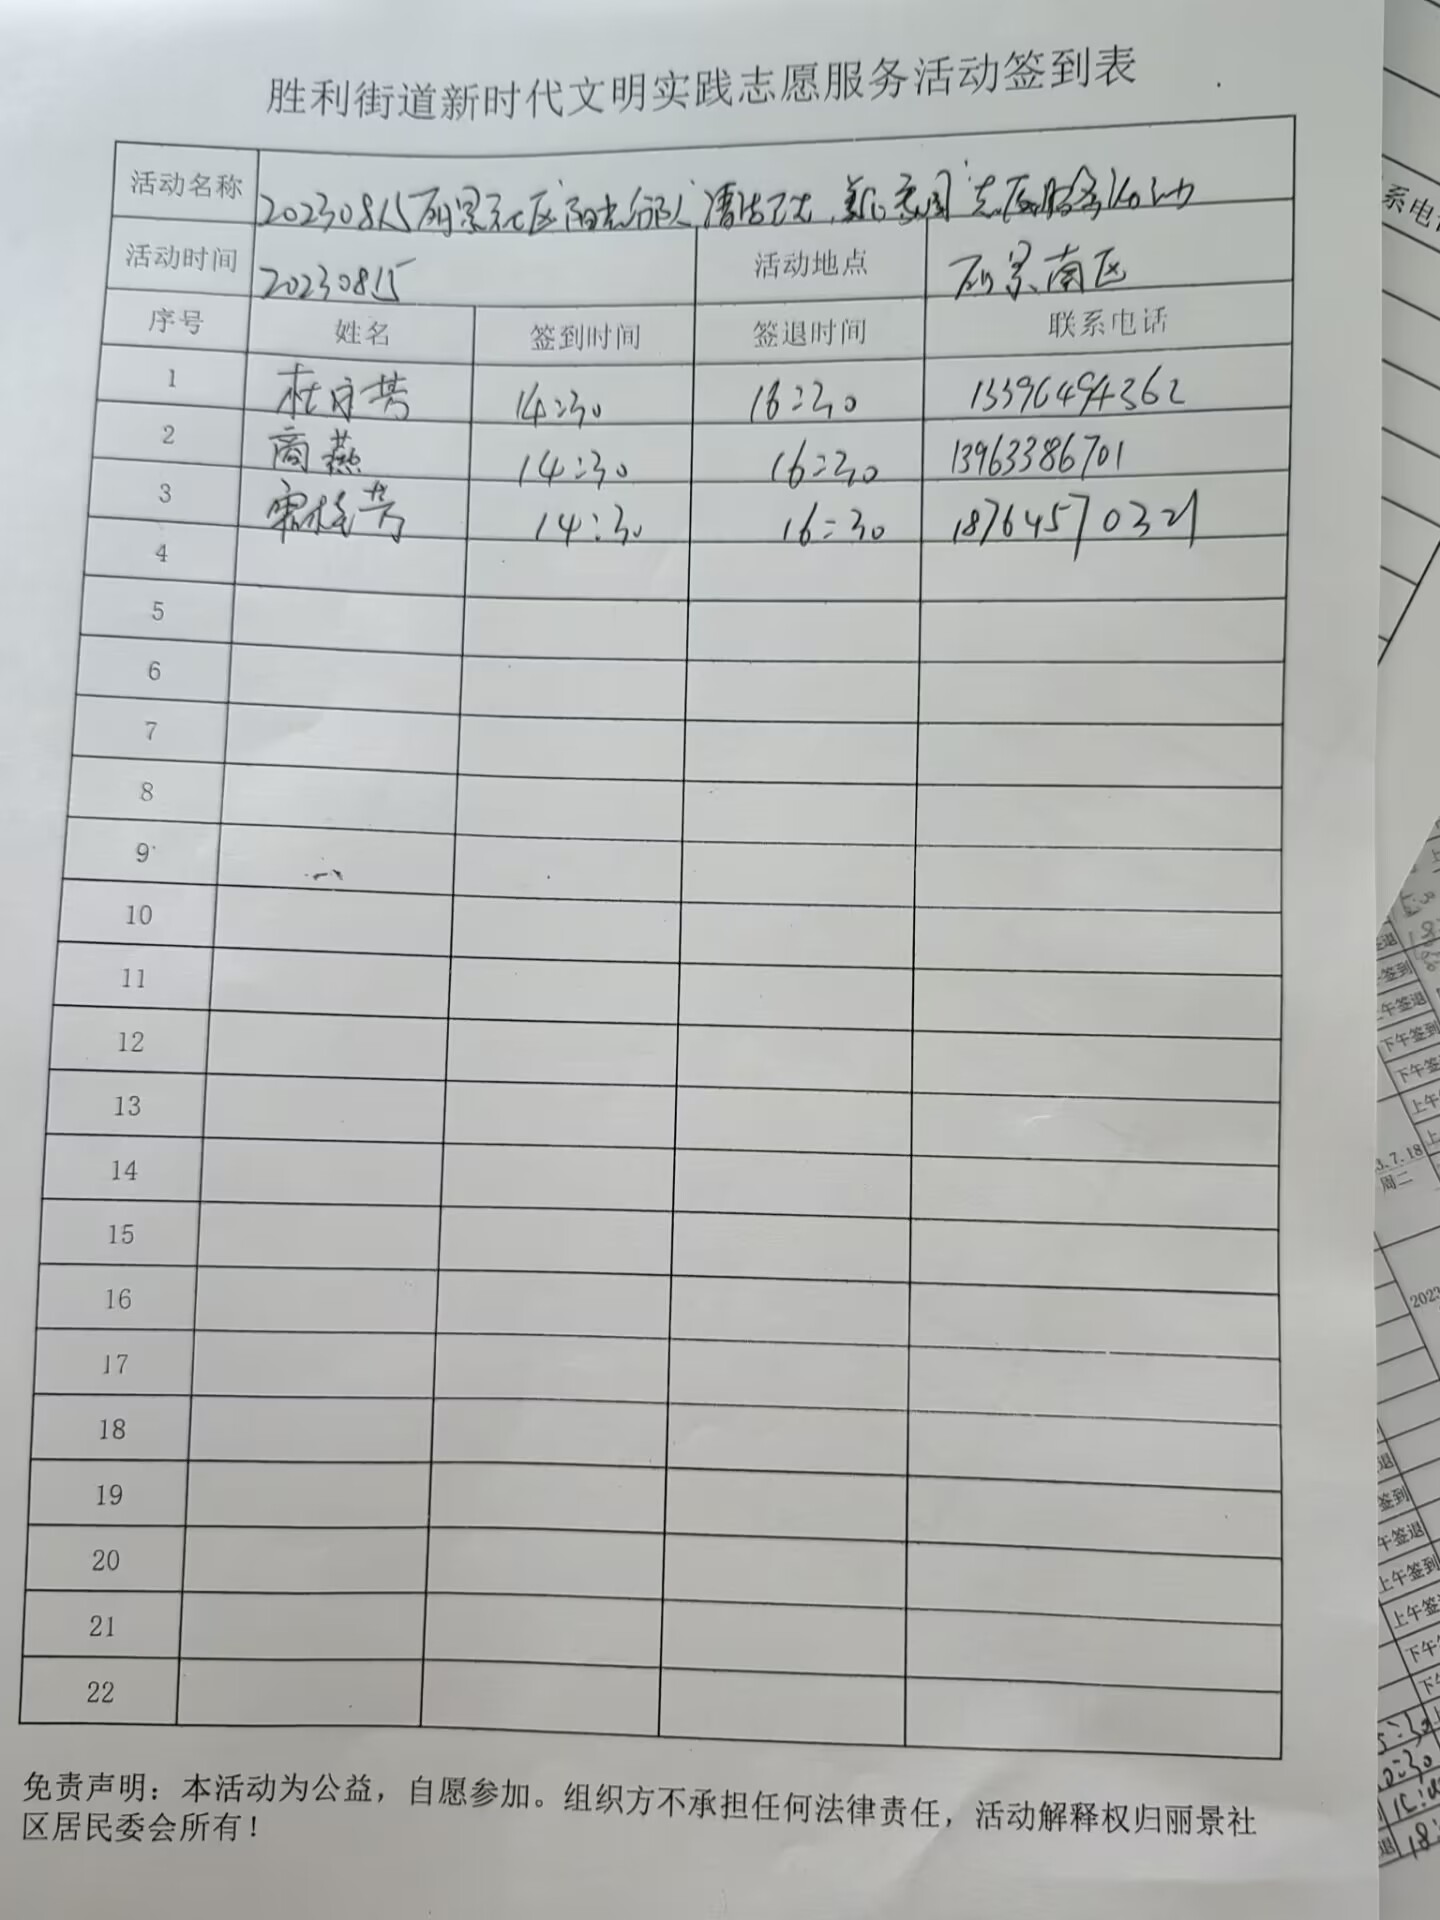 胜利街道新时代文明实践志愿服务活动签到表
活动名称 20230815丽景社区"阳光分队"清洁卫士,美化家园"志愿服务活动
活动时间 20230815 活动地点 丽景南区
序号 姓名 签到时间 签退时间 联系电话
1 杜守芳 14:30 16:30 13396494362
2 商燕 14:30 16:30 13963386701
3 14:30 16:30 18764570321
4
5
6
7
8
9
10
11
12
13
14
15
16
17
18
19
20
21
22
免责声明：本活动为公益，自愿参加。组织方不承担任何法律责任，活动解释权归丽景社
区居民委会所有！
系电话
签退
午签到
午签退
下午签到
上午
3.7.18
周二
2023
签到
午签退
上午签到
下午